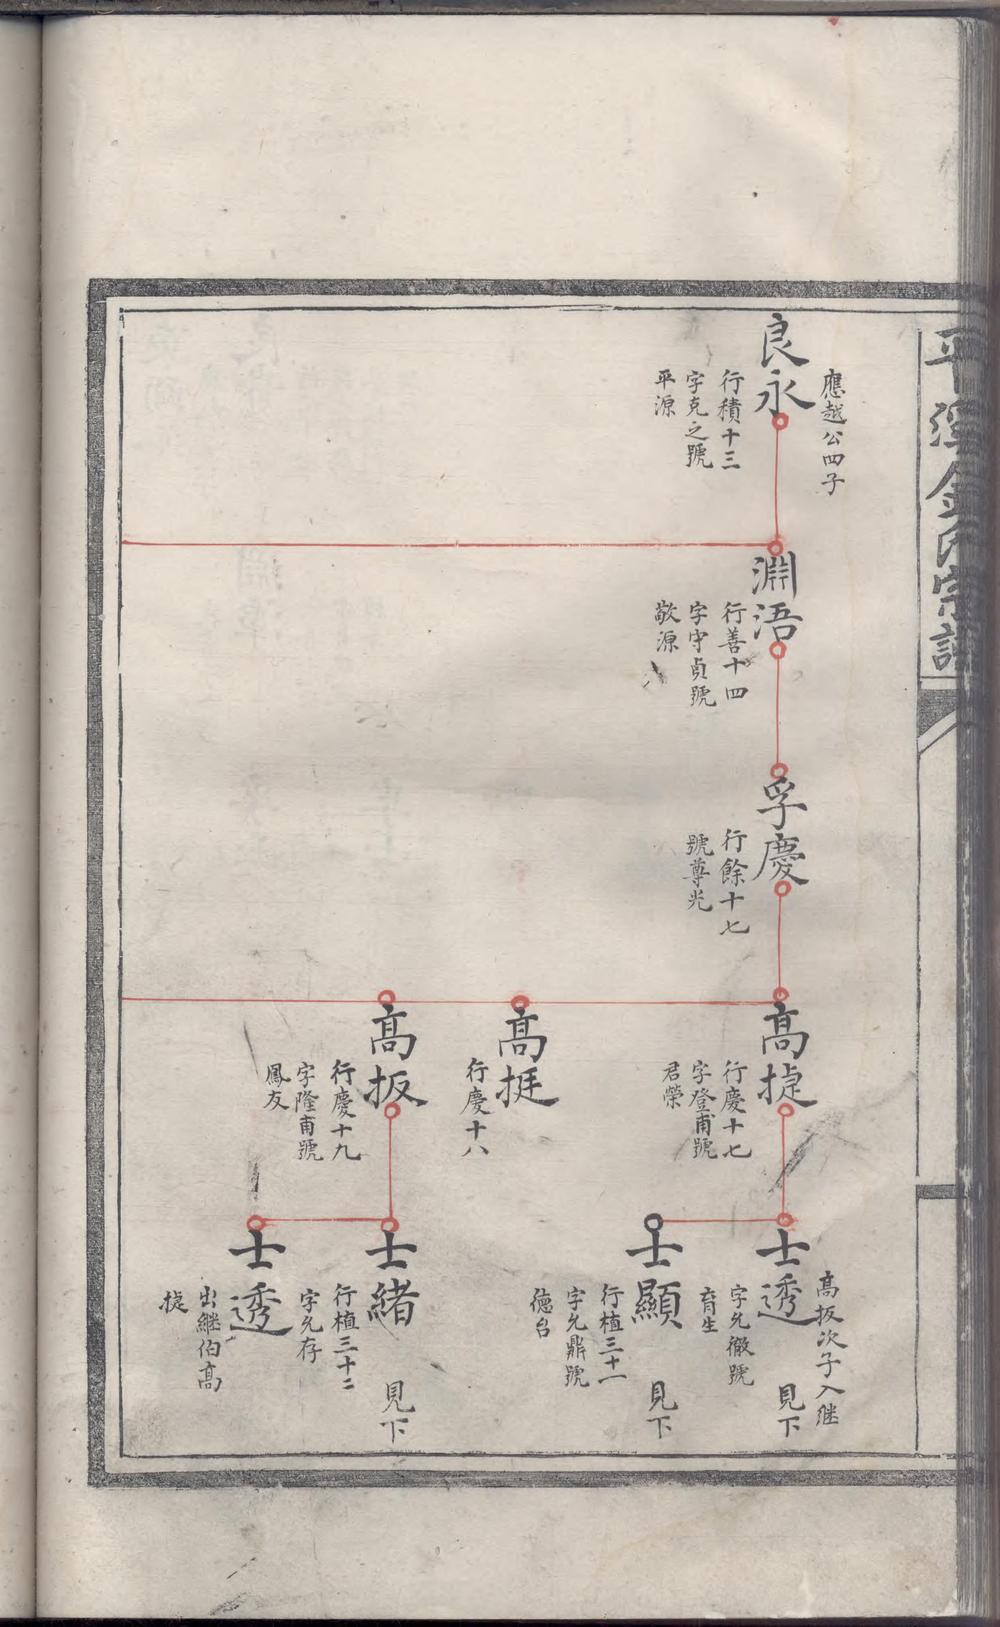 平溪金氏宗譜
應越公四子
良永
行積十三
字克之號
平源
淵浯
行善十四
字守貞號
敬源
孚慶
行餘十七
號尊光
高捷
行慶十七
字登甫號
君榮
高挺
行慶十八
高扳
行慶十九
字隆甫號
鳳友
高扳次子入継
士透
見下
字允徹號
育生
士顯
見下
行植三十一
字允鼎號
德台
士緒
見下
行植三十二
字允存
士透
出継伯高
捷